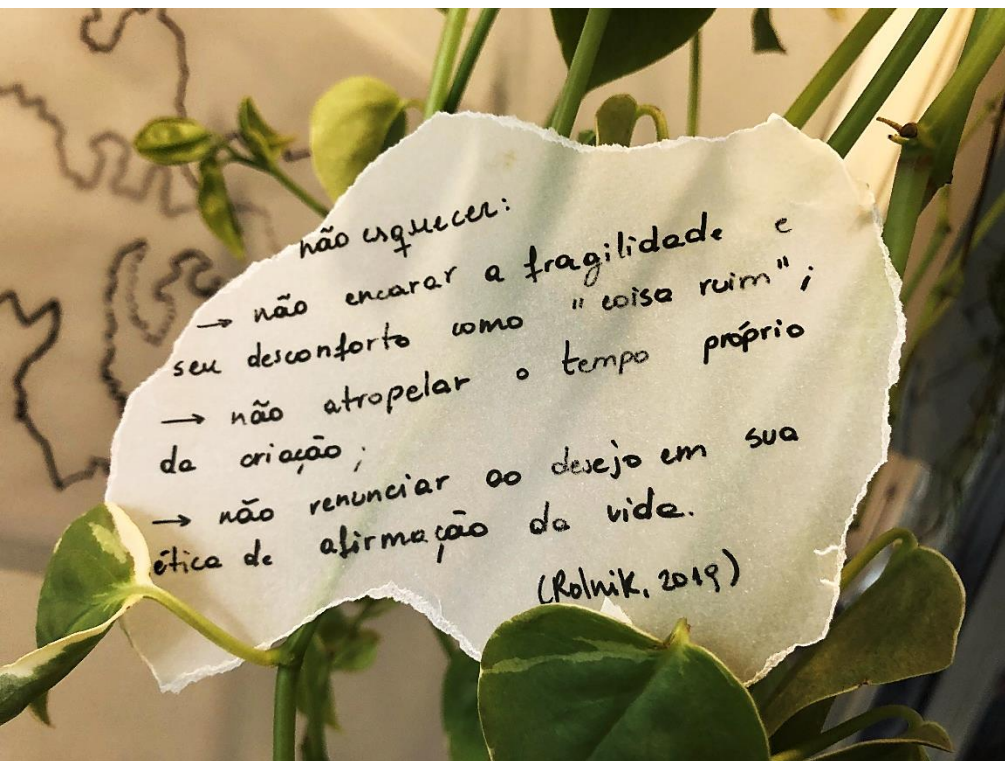 não esquecer:
→ não encarar a fragilidade e
seu desconforto como "coisa ruim";
→ não atropelar o tempo próprio
da criação;
→ não renunciar ao desejo em sua
ética de afirmação da vida.
(Rolnik, 2019)